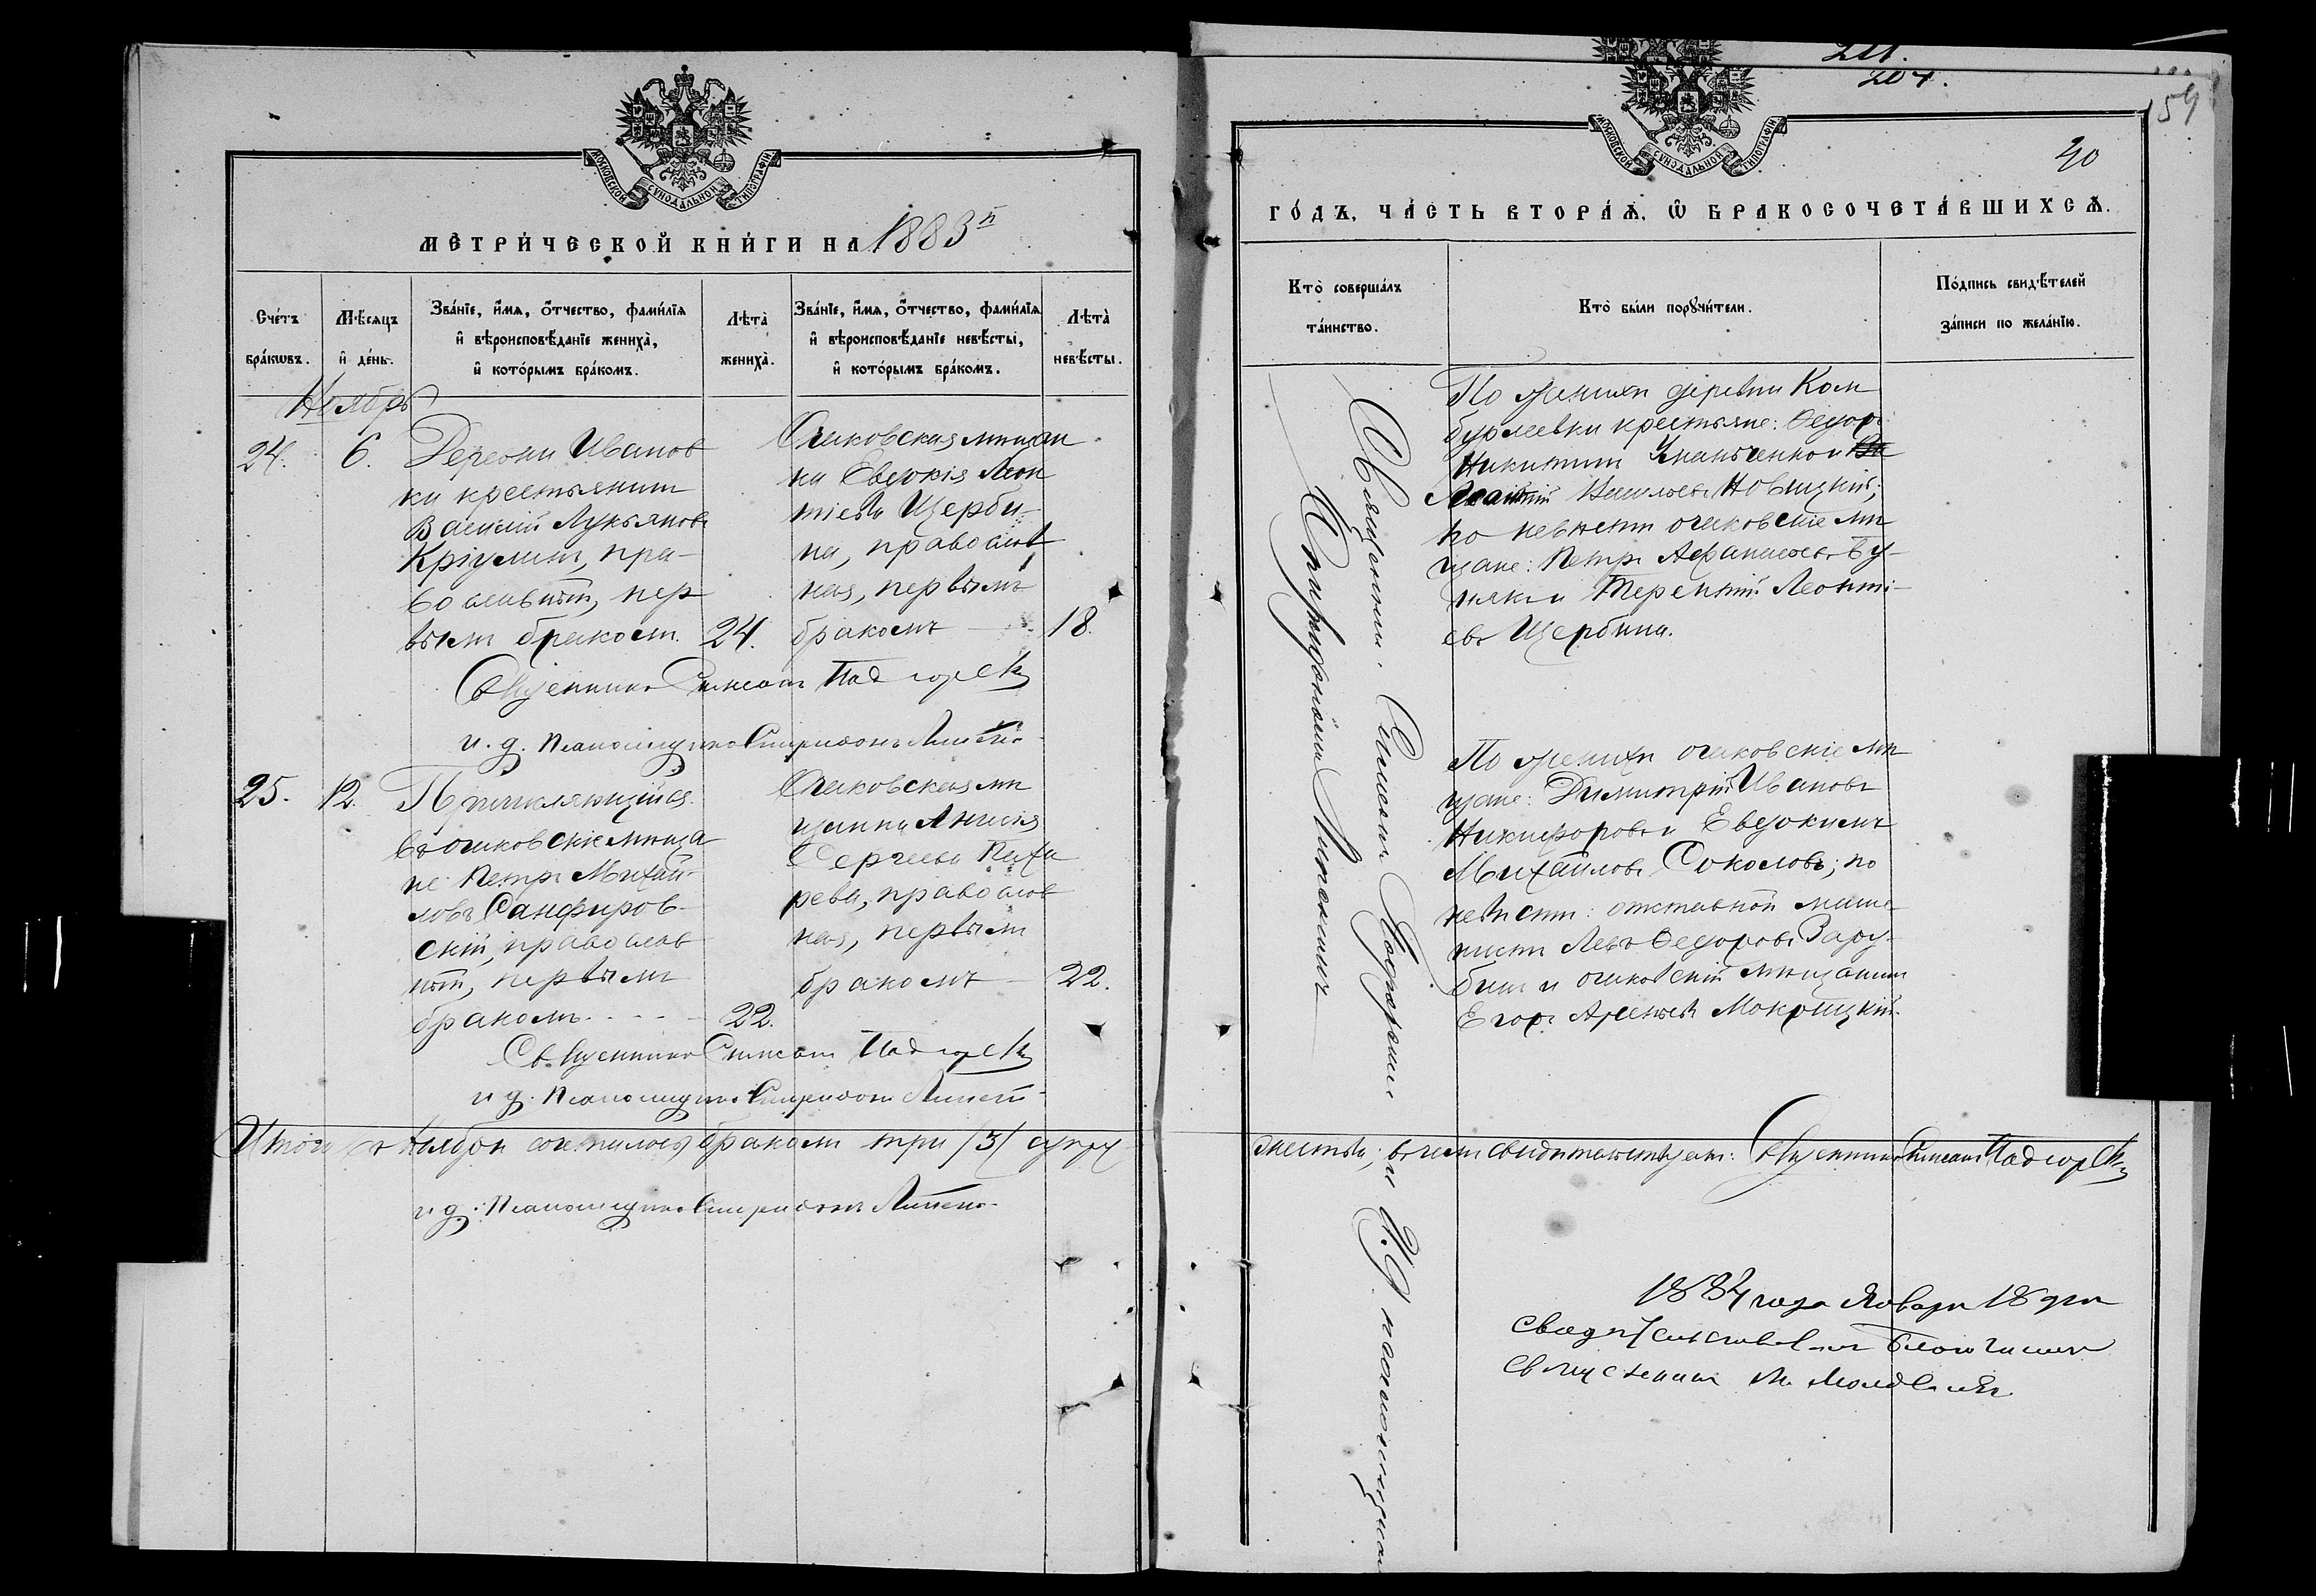 МОСКОВСКОЙ СѴНОДАЛЬНОЙ ТИПОГРАФІИ
МЕТРИ́ЧЕСКОЙ КНИ́ГИ НА 1883й
Сче́тъ бра́кωвъ.
Мѣ́сяцъ и҆ де́нь.
Зва́нїе, и҆́мѧ, ѻ҆́тчество, фами́лїѧ
и҆ вѣроисповѣ́данїе жениха̀,
и҆ кото́рымъ бра́комъ.
Лѣта̀ жениха̀.
Зва́нїе, и҆́мѧ, ѻ҆́тчество, фами́лїѧ
и҆ вѣроисповѣ́данїе невѣ́сты,
и҆ кото́рымъ бра́комъ.
Лѣта̀ невѣ́сты.
Ноябрь
24. 6.
Деревни Иванов
ки крестьянинъ
Василій Лукьяновъ
Кріулинъ, пра-
вославный, пер
вымъ бракомъ. 24.
Очаковская мѣщан
ка Евдокія Леон
тіева Щерби-
на, православ
ная, первымъ
бракомъ 18.
Священникъ Симеонъ Подгорскій
и. д. псаломщика Спиридонъ
25. 12.
Причисляющійся
въ очаковскіе мѣща
не Петръ Михай-
ловъ Санфиров-
скій, православ
ный, первымъ
бракомъ 22.
Очаковская мѣ
щанка Анисія
Сергеева
рева, православ
ная, первымъ
бракомъ 22.
Священникъ Симеонъ Подгорскій
и. д. псаломщика Спиридонъ
Итого въ Ноябрѣ сочталось бракомъ три /3/ супру
и. д. псаломщика Спиридонъ
211.
204.
159
40
МОСКОВСКОЙ СѴНОДАЛЬНОЙ ТИПОГРАФІИ
ГО́ДЪ, ЧА́СТЬ ВТОРА́Ѧ, Ѡ҆ БРАКОСОЧЕТА́ВШИХСѦ.
Кто̀ соверша́лъ
та́инство.
Кто̀ бы́ли порꙋчи́тели.
По́дпись свидѣ́телей
за́писи по жела́нїю.
Священникъ Симеонъ Подгорскій и И. Д. псаломщика
Спиридонъ
По женихѣ деревни Ком
буреевки крестьяне: Ѳедоръ
Никитинъ и
Васильевъ Новицкій;
по невѣстѣ очаковскіе мѣ
щане: Петръ Афанасьевъ Бу-
някъ и Терентій Леонті-
евъ Щербина.
По женихѣ очаковскіе мѣ
щане: Димитрій Ивановъ
Никифоровъ и Евдокимъ
Михайловъ Соколовъ; по
невѣстѣ: отставной маши
нистъ Левъ Ѳедоровъ Зару-
бинъ и очаковскій мѣщанинъ
Егоръ Арсеньевъ Мокрицкій.
жества; въ чемъ свидѣтельствуетъ: Священникъ Симеонъ Подгорскій
1884 года Января 18 дня
свидѣтельствовалъ Благочинный
священникъ М.